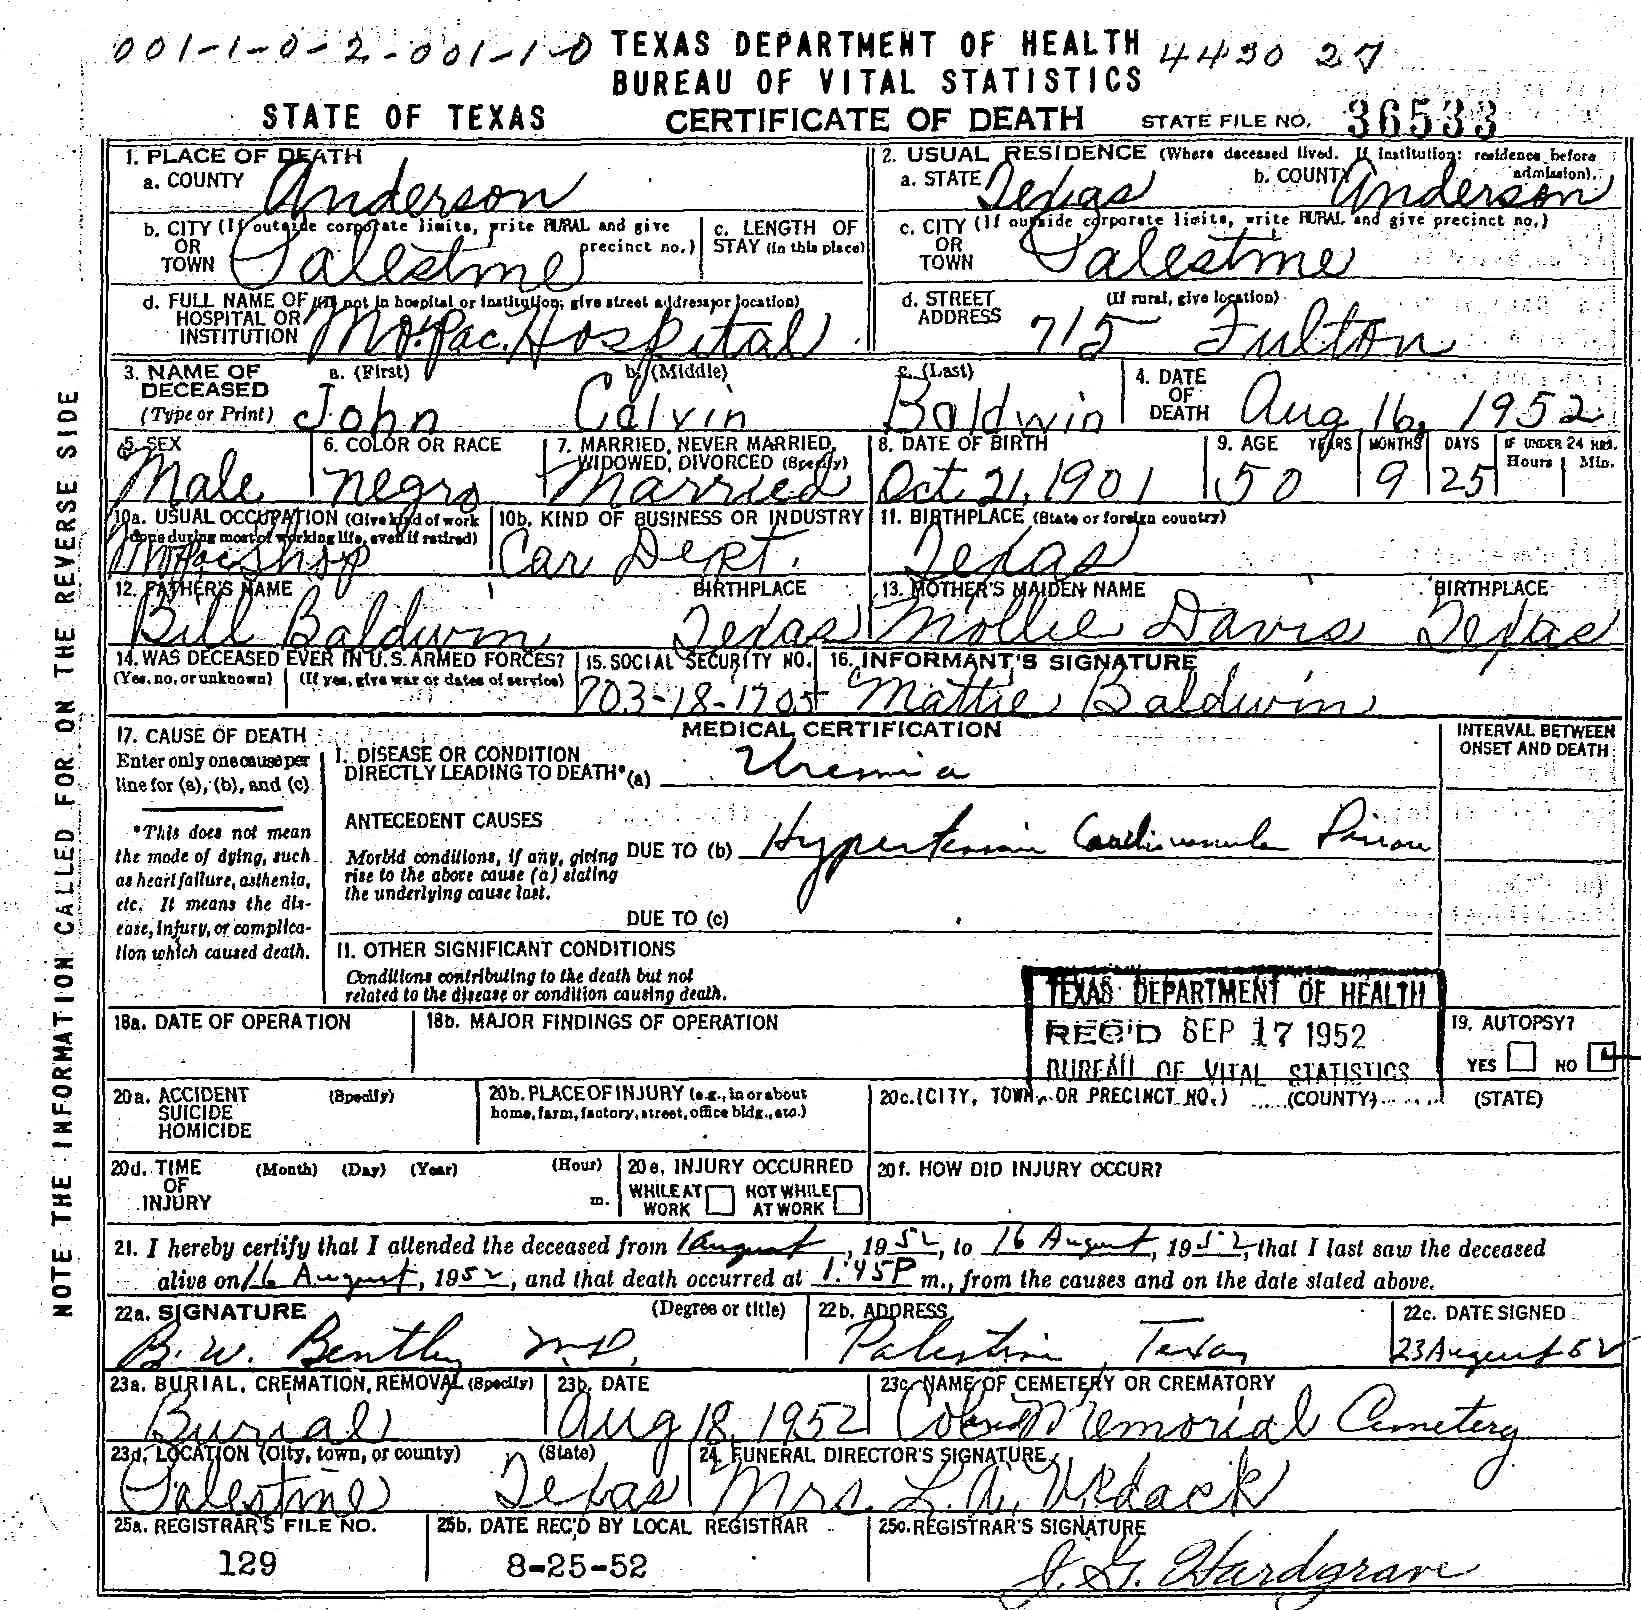 001-1-0-2-001-1-0 TEXAS DEPARTMENT OF HEALTH 4430 27
BUREAU OF VITAL STATISTICS
STATE OF TEXAS CERTIFICATE OF DEATH STATE FILE NO. 36533
NOTE THE INFORMATION CALLED FOR ON THE REVERSE SIDE
1. PLACE OF DEATH
a. COUNTY Anderson
2. USUAL RESIDENCE (Where deceased lived. If institution: residence before admission).
a. STATE Texas b. COUNTY Anderson
b. CITY (If outside corporate limits, write RURAL and give precinct no.)
OR
TOWN Palestine
c. LENGTH OF
STAY (in this place)
c. CITY (If outside corporate limits, write RURAL and give precinct no.)
OR
TOWN Palestine
d. FULL NAME OF (If not in hospital or institution, give street address or location)
HOSPITAL OR
INSTITUTION Mo. Pac. Hospital
d. STREET (If rural, give location)
ADDRESS 715 Fulton
3. NAME OF a. (First) b. (Middle) c. (Last)
DECEASED
(Type or Print) John Calvin Baldwin
4. DATE
OF
DEATH Aug 16, 1952
5. SEX
Male
6. COLOR OR RACE
negro
7. MARRIED, NEVER MARRIED,
WIDOWED, DIVORCED (Specify)
Married
8. DATE OF BIRTH
Oct. 21, 1901
9. AGE YEARS MONTHS DAYS IF UNDER 24 HRS.
Hours Min.
50 9 25
10a. USUAL OCCUPATION (Give kind of work
done during most of working life, even if retired)
MoPac Shop
10b. KIND OF BUSINESS OR INDUSTRY
Car Dept.
11. BIRTHPLACE (State or foreign country)
Texas
12. FATHER'S NAME BIRTHPLACE
Bill Baldwin Texas
13. MOTHER'S MAIDEN NAME BIRTHPLACE
Mollie Davis Texas
14. WAS DECEASED EVER IN U.S. ARMED FORCES?
(Yes, no, or unknown) (If yes, give war or dates of service)
15. SOCIAL SECURITY NO.
703-18-1705
16. INFORMANT'S SIGNATURE
Mattie Baldwin
MEDICAL CERTIFICATION
INTERVAL BETWEEN
ONSET AND DEATH
17. CAUSE OF DEATH
Enter only one cause per
line for (a), (b), and (c)
*This does not mean
the mode of dying, such
as heart failure, asthenia,
etc. It means the dis-
ease, injury, or complica-
tion which caused death.
I. DISEASE OR CONDITION
DIRECTLY LEADING TO DEATH* (a) Uremia
ANTECEDENT CAUSES
Morbid conditions, if any, giving
rise to the above cause (a) stating
the underlying cause last.
DUE TO (b) Hypertensive Cardiovascular Disease
DUE TO (c)
II. OTHER SIGNIFICANT CONDITIONS
Conditions contributing to the death but not
related to the disease or condition causing death.
TEXAS DEPARTMENT OF HEALTH
REC'D SEP 17 1952
BUREAU OF VITAL STATISTICS
18a. DATE OF OPERATION
18b. MAJOR FINDINGS OF OPERATION
19. AUTOPSY?
YES NO
20a. ACCIDENT (Specify)
SUICIDE
HOMICIDE
20b. PLACE OF INJURY (e.g., in or about
home, farm, factory, street, office bldg., etc.)
20c. (CITY, TOWN, OR PRECINCT NO.) (COUNTY) (STATE)
20d. TIME (Month) (Day) (Year) (Hour)
OF
INJURY m.
20e. INJURY OCCURRED
WHILE AT WORK NOT WHILE AT WORK
20f. HOW DID INJURY OCCUR?
21. I hereby certify that I attended the deceased from 1 August, 1952, to 16 August, 1952, that I last saw the deceased
alive on 16 August, 1952, and that death occurred at 1:45P m., from the causes and on the date stated above.
22a. SIGNATURE (Degree or title)
B. W. Bentley M.D.
22b. ADDRESS
Palestine, Texas
22c. DATE SIGNED
23 August 52
23a. BURIAL, CREMATION, REMOVAL (Specify)
Burial
23b. DATE
Aug 18, 1952
23c. NAME OF CEMETERY OR CREMATORY
Memorial Cemetery
23d. LOCATION (City, town, or county) (State)
Palestine Texas
24. FUNERAL DIRECTOR'S SIGNATURE
Mrs. L. A.
25a. REGISTRAR'S FILE NO.
129
25b. DATE REC'D BY LOCAL REGISTRAR
8-25-52
25c. REGISTRAR'S SIGNATURE
J. G. Hardgrave